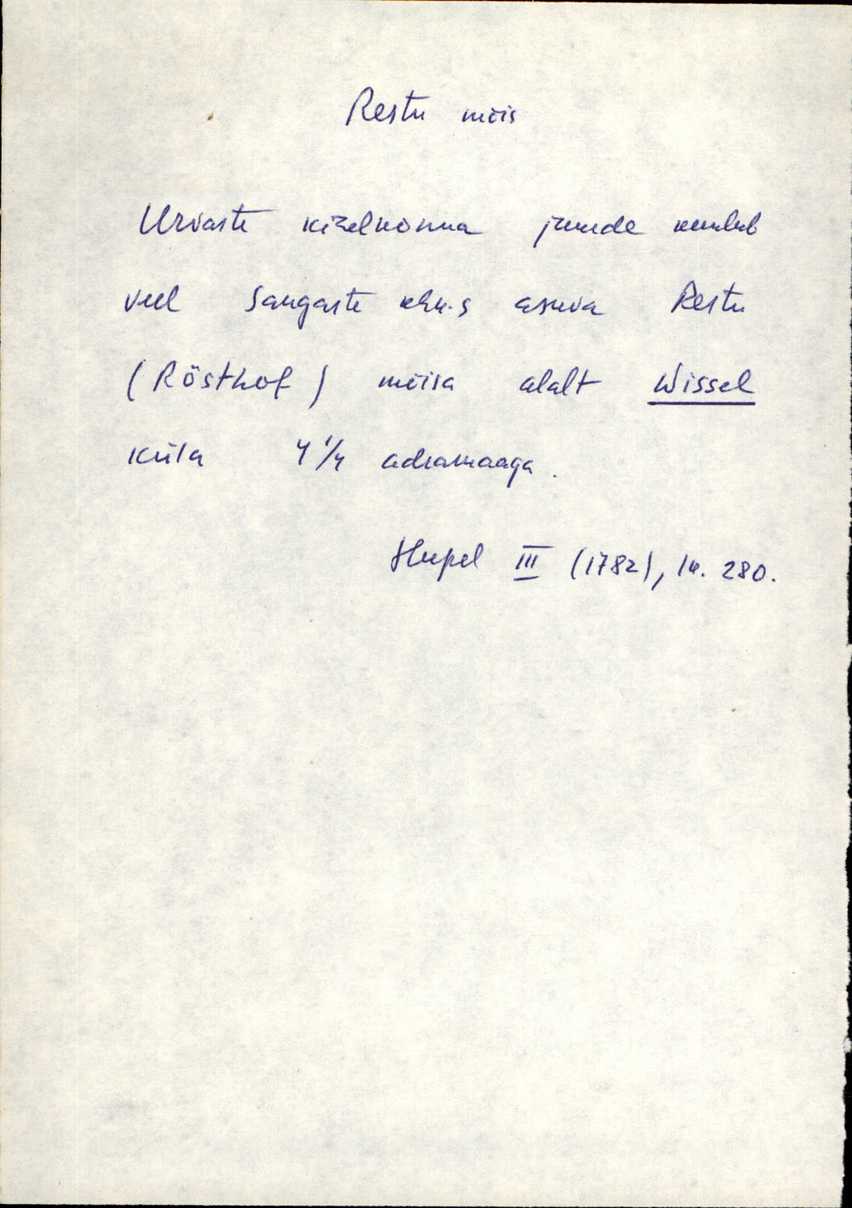 Restu mõis
Urvaste kihelkonna juurde kuulub
veel Sangaste khk.s asuva Restu
(Rösthof) mõisa alalt Wissel
küla 4 1/4 adramaaga.
Hupel III (1782), lk. 280.